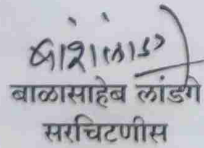 बाळासाहेब लांडगे
सरचिटणीस